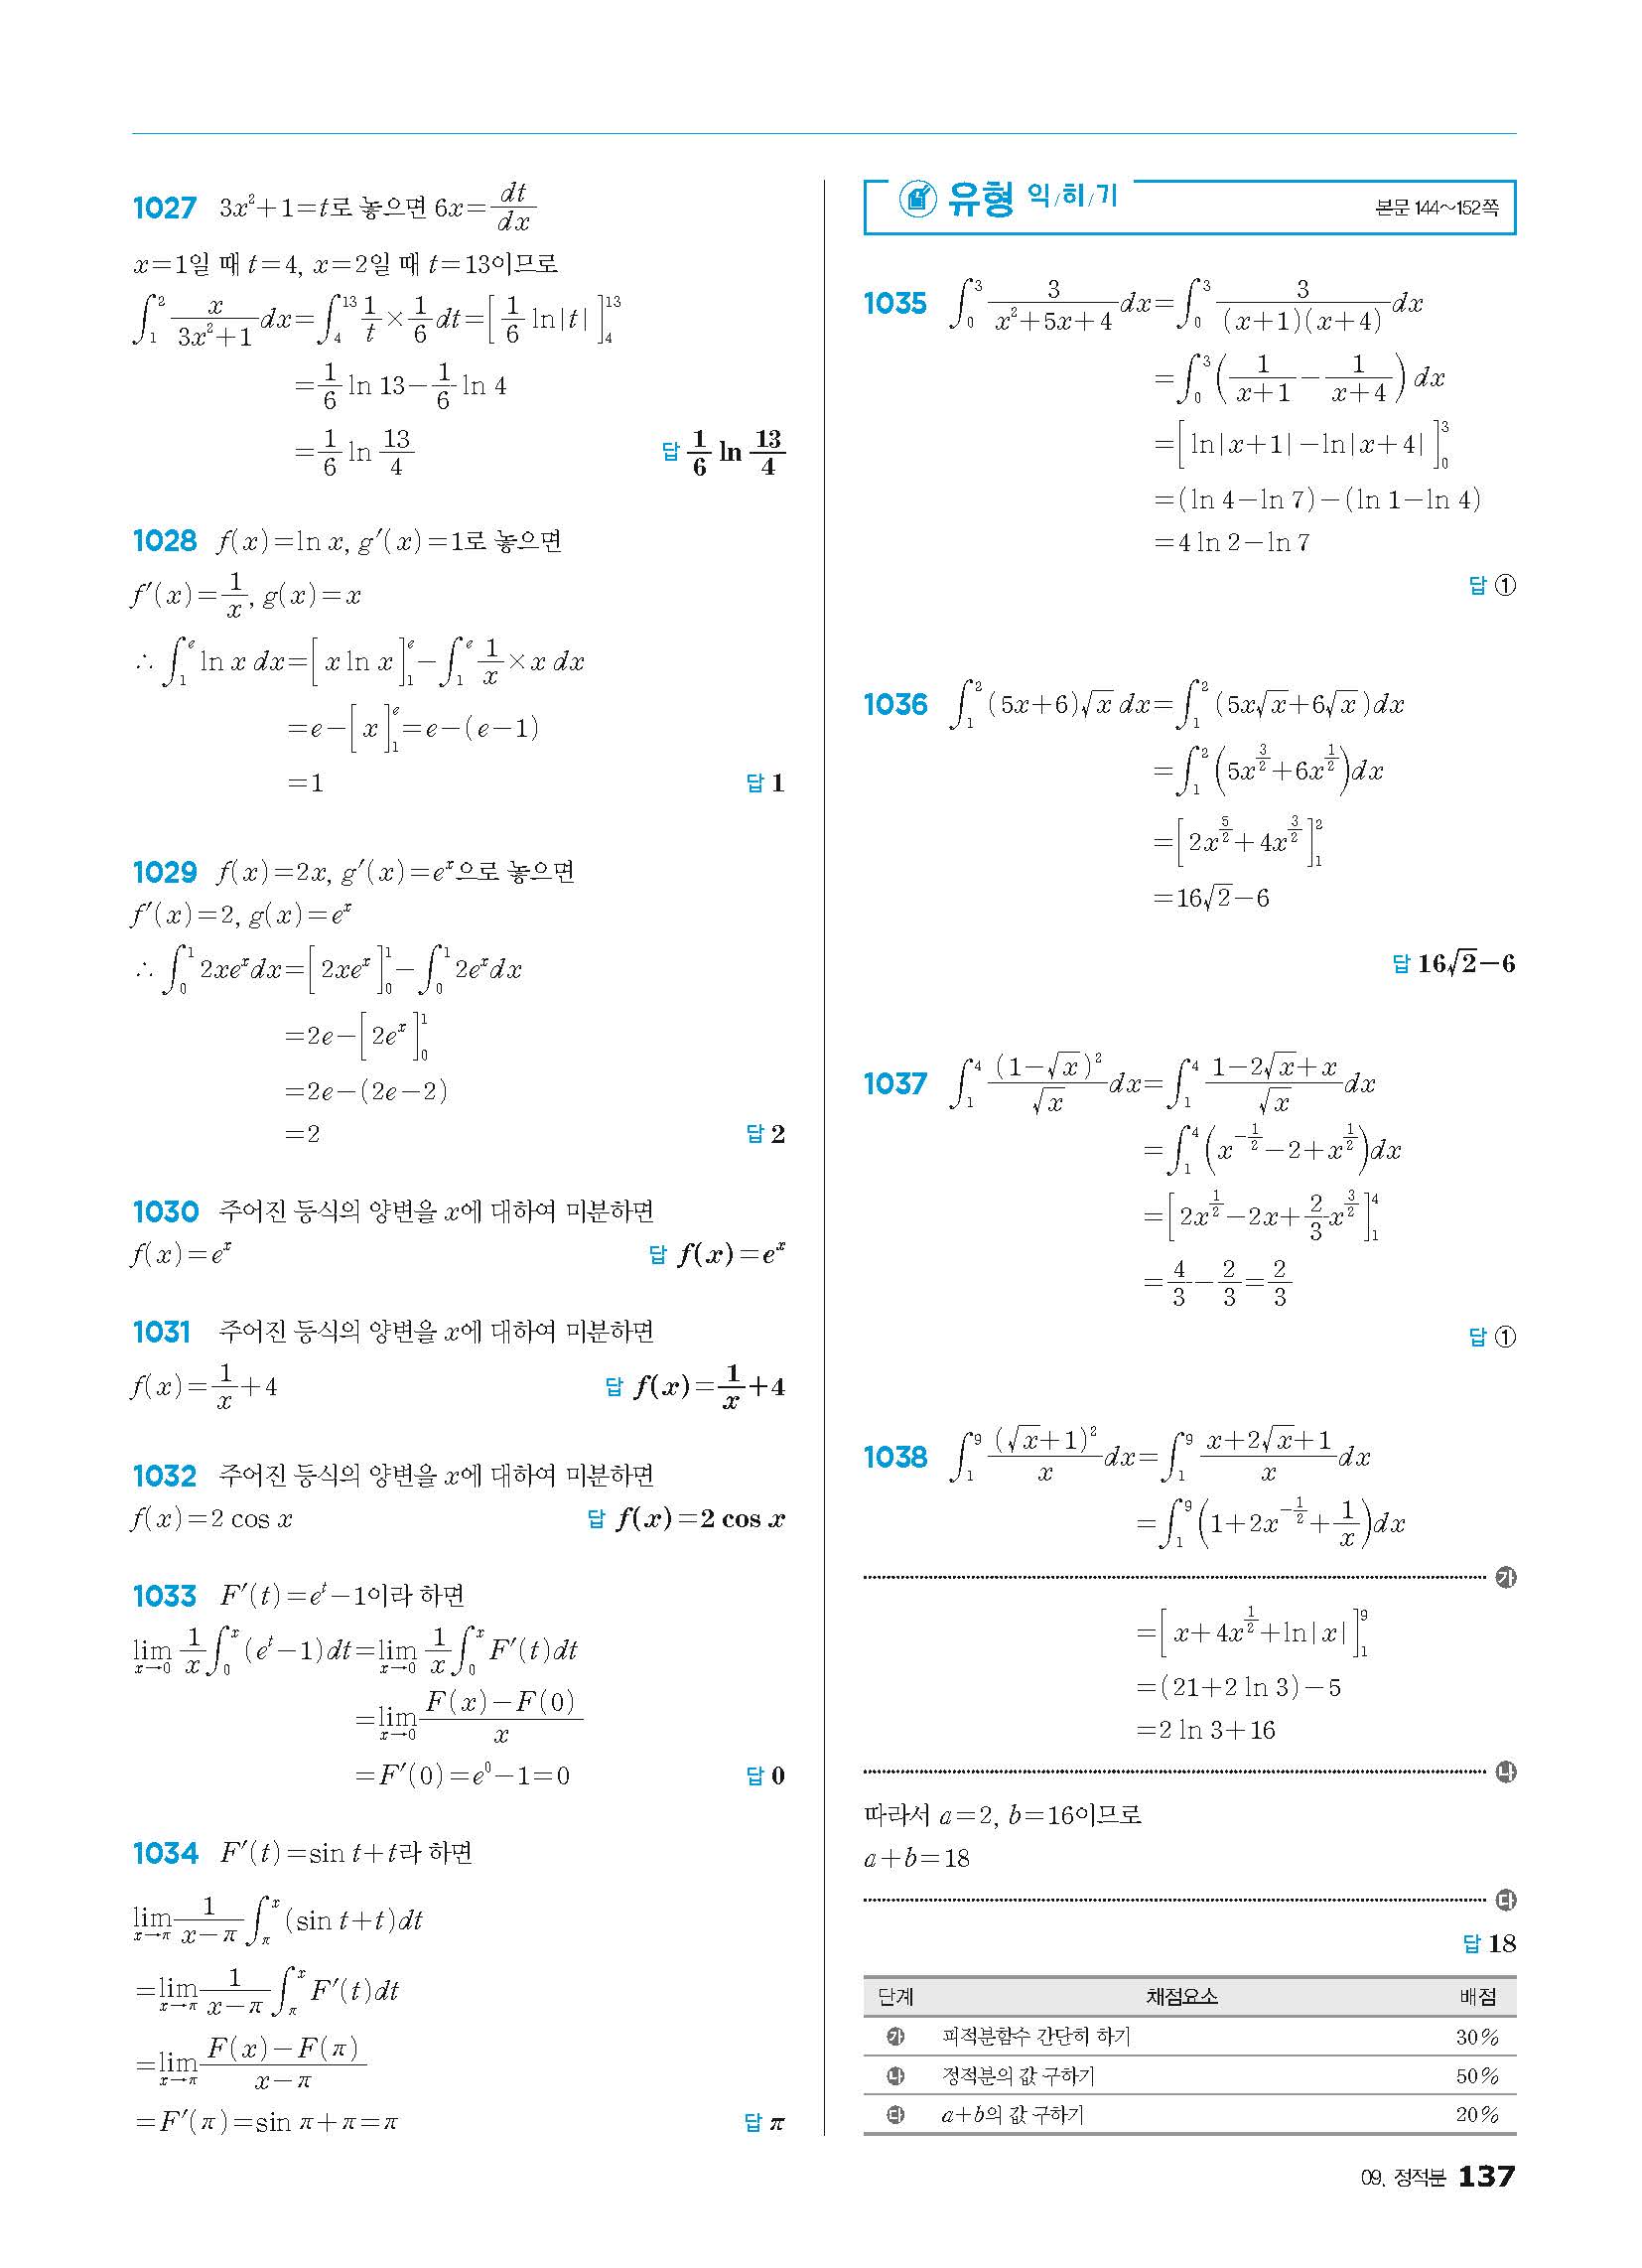 1027 3x²+1=t로 놓으면 6x=dt/dx
x=1일 때 t=4, x=2일 때 t=13이므로
∫₁² x/(3x²+1) dx=∫₄¹³ 1/t×1/6 dt=[1/6 ln|t|]₄¹³
=1/6 ln 13−1/6 ln 4
=1/6 ln 13/4 답 1/6 ln 13/4
1028 f(x)=ln x, g′(x)=1로 놓으면
f′(x)=1/x, g(x)=x
∴ ∫₁ᵉ ln x dx=[x ln x]₁ᵉ−∫₁ᵉ 1/x×x dx
=e−[x]₁ᵉ=e−(e−1)
=1 답 1
1029 f(x)=2x, g′(x)=eˣ으로 놓으면
f′(x)=2, g(x)=eˣ
∴ ∫₀¹ 2xeˣdx=[2xeˣ]₀¹−∫₀¹ 2eˣdx
=2e−[2eˣ]₀¹
=2e−(2e−2)
=2 답 2
1030 주어진 등식의 양변을 x에 대하여 미분하면
f(x)=eˣ 답 f(x)=eˣ
1031 주어진 등식의 양변을 x에 대하여 미분하면
f(x)=1/x+4 답 f(x)=1/x+4
1032 주어진 등식의 양변을 x에 대하여 미분하면
f(x)=2 cos x 답 f(x)=2 cos x
1033 F′(t)=eᵗ−1이라 하면
lim_{x→0} 1/x ∫₀ˣ (eᵗ−1)dt=lim_{x→0} 1/x ∫₀ˣ F′(t)dt
=lim_{x→0} (F(x)−F(0))/x
=F′(0)=e⁰−1=0 답 0
1034 F′(t)=sin t+t라 하면
lim_{x→π} 1/(x−π) ∫_π^x (sin t+t)dt
=lim_{x→π} 1/(x−π) ∫_π^x F′(t)dt
=lim_{x→π} (F(x)−F(π))/(x−π)
=F′(π)=sin π+π=π 답 π
유형 익/히/기 본문 144~152쪽
1035 ∫₀³ 3/(x²+5x+4) dx=∫₀³ 3/((x+1)(x+4)) dx
=∫₀³ (1/(x+1)−1/(x+4)) dx
=[ln|x+1|−ln|x+4|]₀³
=(ln 4−ln 7)−(ln 1−ln 4)
=4 ln 2−ln 7
답 ①
1036 ∫₁² (5x+6)√x dx=∫₁² (5x√x+6√x)dx
=∫₁² (5x^(3/2)+6x^(1/2))dx
=[2x^(5/2)+4x^(3/2)]₁²
=16√2−6
답 16√2−6
1037 ∫₁⁴ (1−√x)²/√x dx=∫₁⁴ (1−2√x+x)/√x dx
=∫₁⁴ (x^(−1/2)−2+x^(1/2))dx
=[2x^(1/2)−2x+2/3 x^(3/2)]₁⁴
=4/3−2/3=2/3
답 ①
1038 ∫₁⁹ (√x+1)²/x dx=∫₁⁹ (x+2√x+1)/x dx
=∫₁⁹ (1+2x^(−1/2)+1/x)dx
㉮
=[x+4x^(1/2)+ln|x|]₁⁹
=(21+2 ln 3)−5
=2 ln 3+16
㉯
따라서 a=2, b=16이므로
a+b=18
㉰
답 18
단계 채점요소 배점
㉮ 피적분함수 간단히 하기 30%
㉯ 정적분의 값 구하기 50%
㉰ a+b의 값 구하기 20%
09. 정적분 137